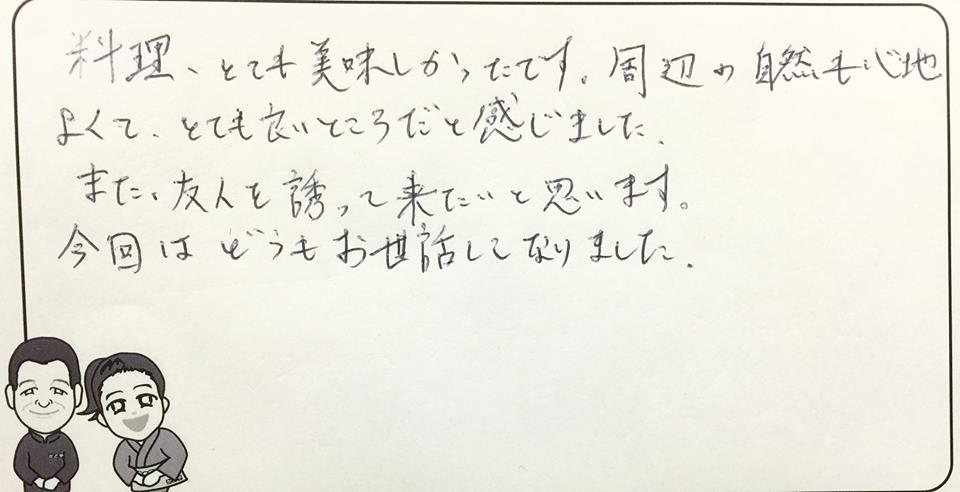 料理、とても美味しかったです。周辺の自然も心地
よくて、とても良いところだと感じました.
また、友人を誘って来たいと思います。
今回はどうもお世話になりました.